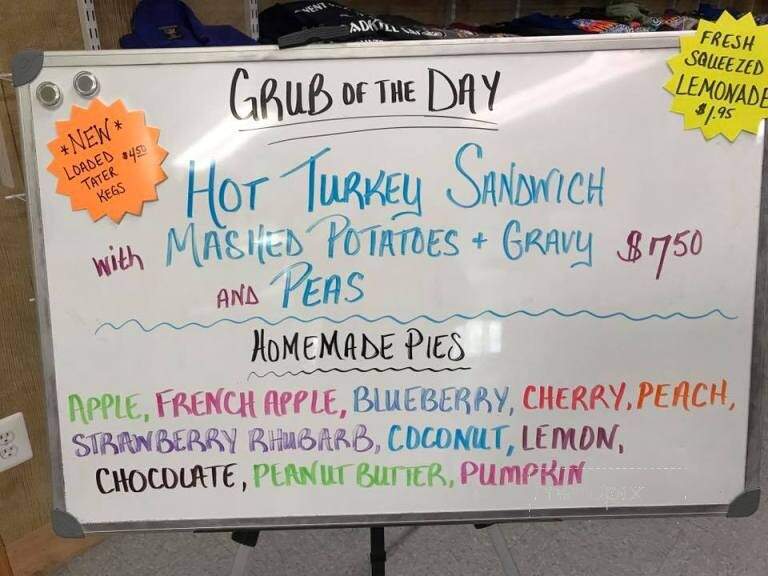 GRUB OF THE DAY
FRESH
SQUEEZED
LEMONADE
$1.95
*NEW*
LOADED $4.50
TATER
KEGS
HOT TURKEY SANDWICH
with MASHED POTATOES + GRAVY $7.50
AND PEAS
HOMEMADE PIES
APPLE, FRENCH APPLE, BLUEBERRY, CHERRY, PEACH,
STRAWBERRY RHUBARB, COCONUT, LEMON,
CHOCOLATE, PEANUT BUTTER, PUMPKIN